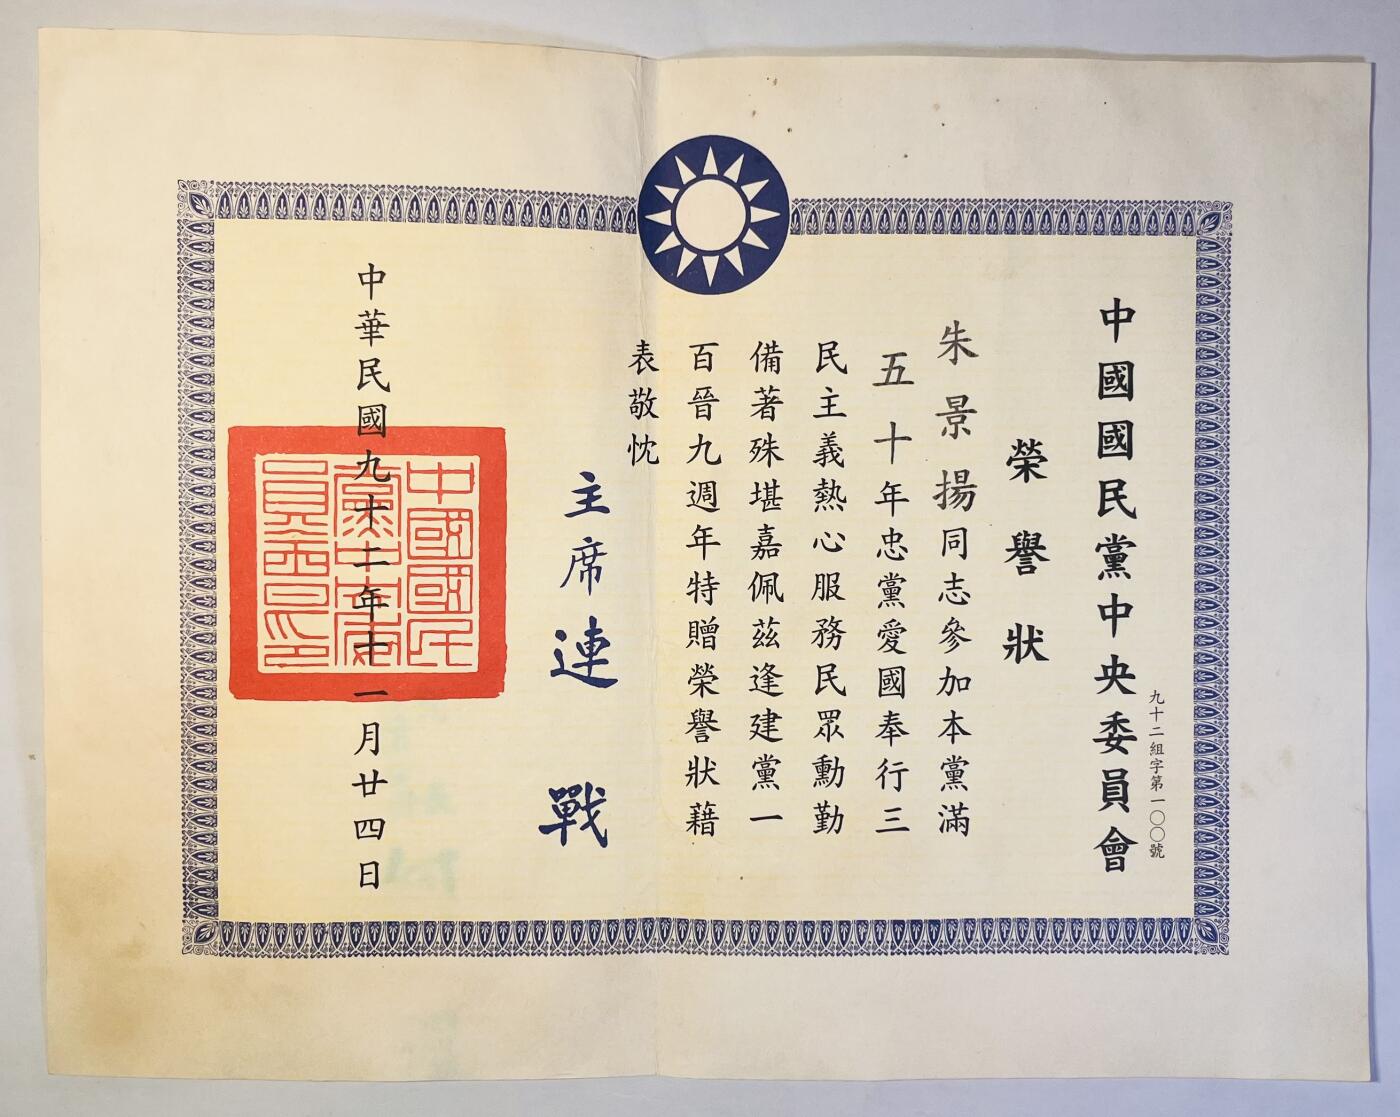 中國國民黨中央委員會
九十二組字第一〇〇號
榮譽狀
朱景揚同志參加本黨滿
五十年忠黨愛國奉行三
民主義熱心服務民眾勳勤
備著殊堪嘉佩茲逢建黨一
百晉九週年特贈榮譽狀藉
表敬忱
主席連戰
中華民國九十二年十一月廿四日
中國國民
黨中央委
員會之印